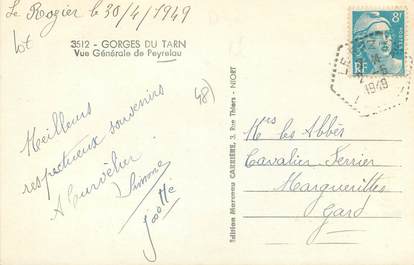 Le Rozier le 30/4/1949
Lot
3512 - GORGES DU TARN
Vue Générale de Peyrelau
48)
Meilleurs
respectueux souvenirs
Simone
Edition Marceau CARRIÈRE, 3, Rue Thiers - NIORT
8F
POSTES
RF
1949
Mrs les Abbés
Cavalier Terrier
Marguerittes
Gard